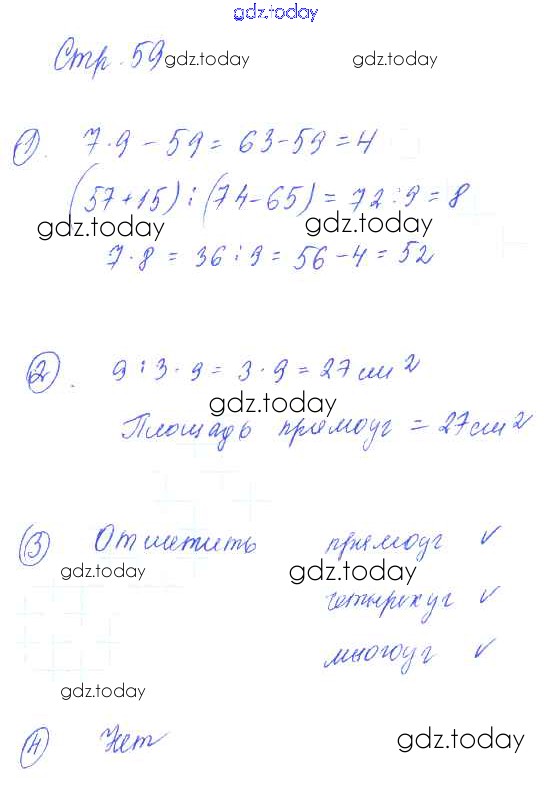 gdz.today
Стр. 59 gdz.today gdz.today
1). 7·9 - 59 = 63 - 59 = 4
(57+15) : (74-65) = 72 : 9 = 8
gdz.today gdz.today
7·8 = 36 : 9 = 56 - 4 = 52
2). 9 : 3 · 9 = 3 · 9 = 27 см 2
gdz.today
Площадь прямоуг = 27 см 2
3) Отметить прямоуг ✓
gdz.today gdz.today
четырехуг ✓
многоуг ✓
gdz.today
4) Нет gdz.today